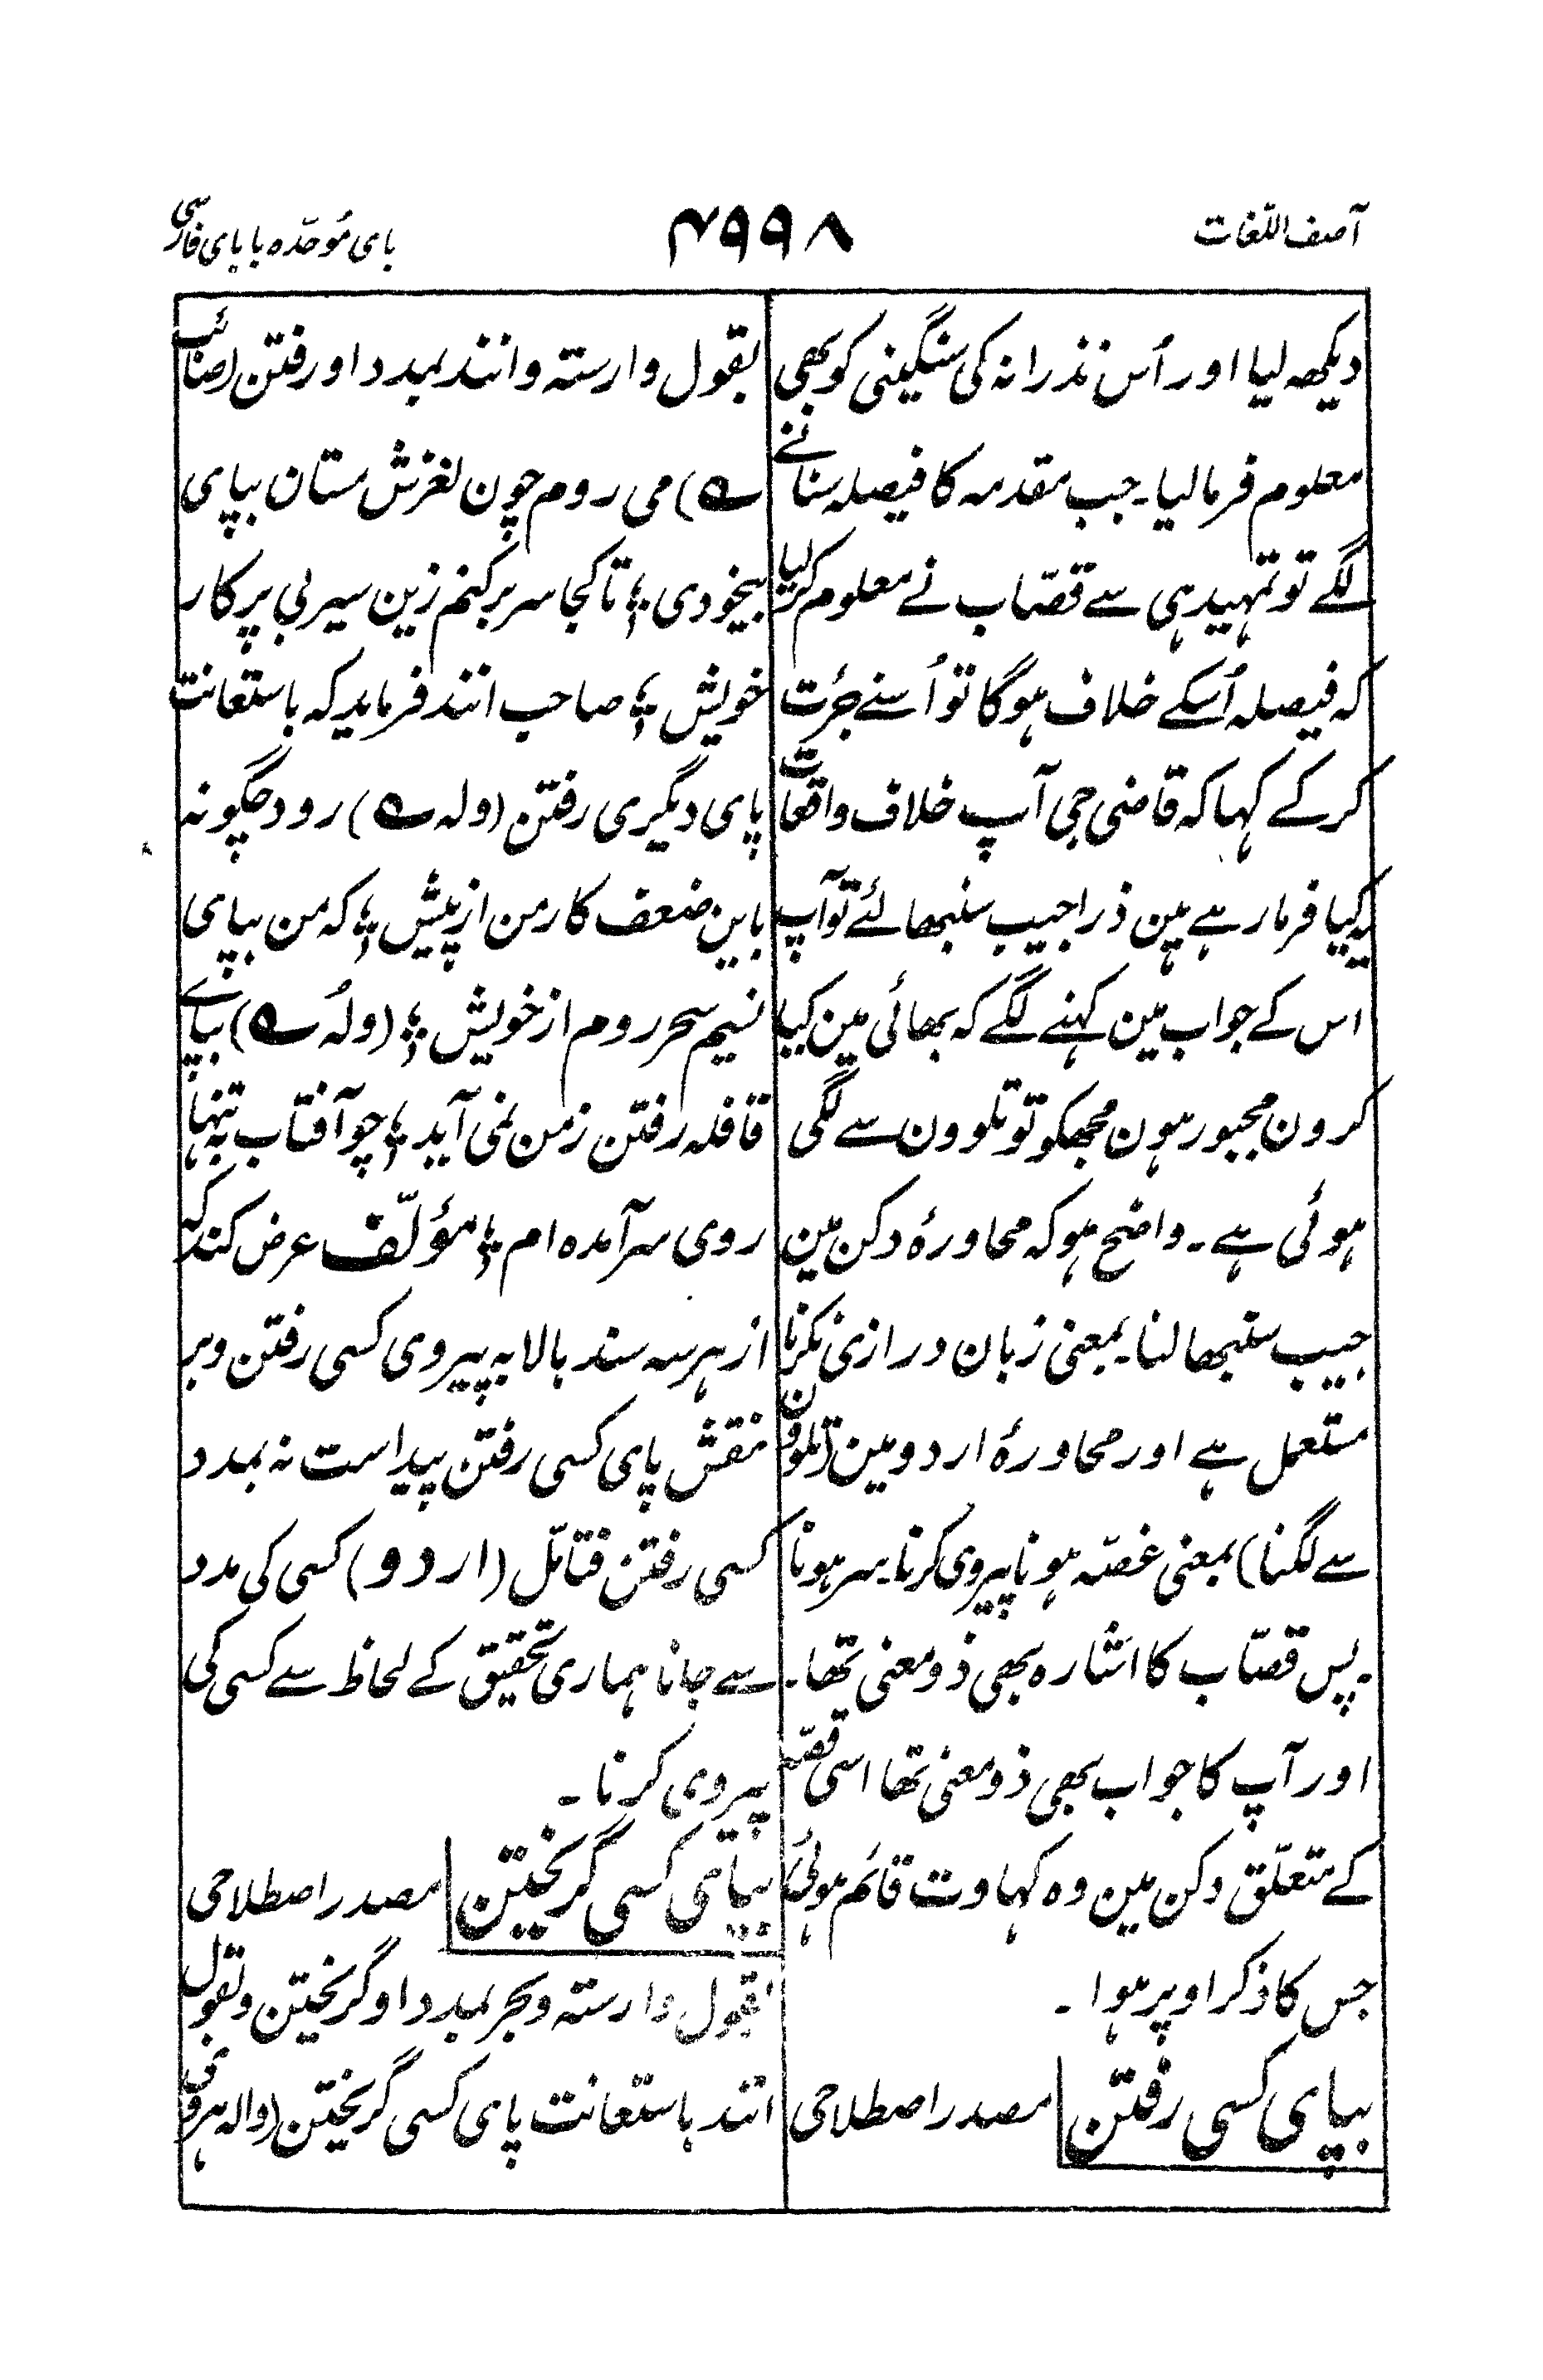 آصف اللّغات
۴۹۹۸
بای مُوحّدہ با بای فارسی
دیکھہ لیا اور اُس نذرانہ کی سنگینی کو بھی
معلوم فرمالیا۔ جب مقدمہ کا فیصلہ سنانے
لگے تو تمہید ہی سے قصّاب نے معلوم کرلیا
کہ فیصلہ اُسکے خلاف ہوگا تو اُسنے جرُت
کرکے کہا کہ قاضی جی آپ خلاف واقعات
یہ کیا فرمارہے ہین ذرا جیب سنبھالئے تو آپ
اس کے جواب مین کہنے لگے کہ بھائی مین کیا
کرون مجبور ہون مجھکو تو تلوون سے لگی
ہوئی ہے۔ واضح ہو کہ محاورۂ دکن مین
جیب سنبھالنا۔ بمعنی زبان درازی نکرنا
مستعمل ہے اور محاورۂ اردو مین (تلوون
سے لگنا) بمعنی غصّہ ہونا پیروی کرنا۔ سر ہونا
پس قصّاب کا اشارہ بھی ذومعنی تھا۔
اور آپ کا جواب بھی ذومعنی تھا اسی قصّہ
کے متعلّق دکن مین وہ کہاوت قائم ہوئی
جس کا ذکر اوپر ہوا۔
بپای کسی رفتن مصدر اصطلاحی
بقول وارستہ و انند بمدد او رفتن (صائب
ے) می روم چون لغزش مستان بپای
بیخودی ؛ تا کجا سر بر کنم زین سیر بی پرکار
خویش ؛ صاحب انند فرماید کہ باستعانت
پای دیگری رفتن (ولہ ے) رود چگونہ
باین ضعف کار من از پیش ؛ کہ من بپای
نسیم سحر روم از خویش ؛ (ولہُ ے) بپاے
قافلہ رفتن زمن نمی آید ؛ چو آفتاب بہ تنہا
روی سر آمدہ ام ؛ مؤلّف عرض کند کہ
از ہر سہ سند بالا بہ پیروی کسی رفتن و بر
نقش پای کسی رفتن پیداست نہ بمدد
کسی رفتن فتامّل (اردو) کسی کی مدد
سے جانا ہماری تحقیق کے لحاظ سے کسی کی
پیروی کرنا۔
بپای کسی گریختن مصدر اصطلاحی
بقول وارستہ و بحر بمدد او گریختن و بقول
انند باستعانت پای کسی گریختن (والہ ہروی